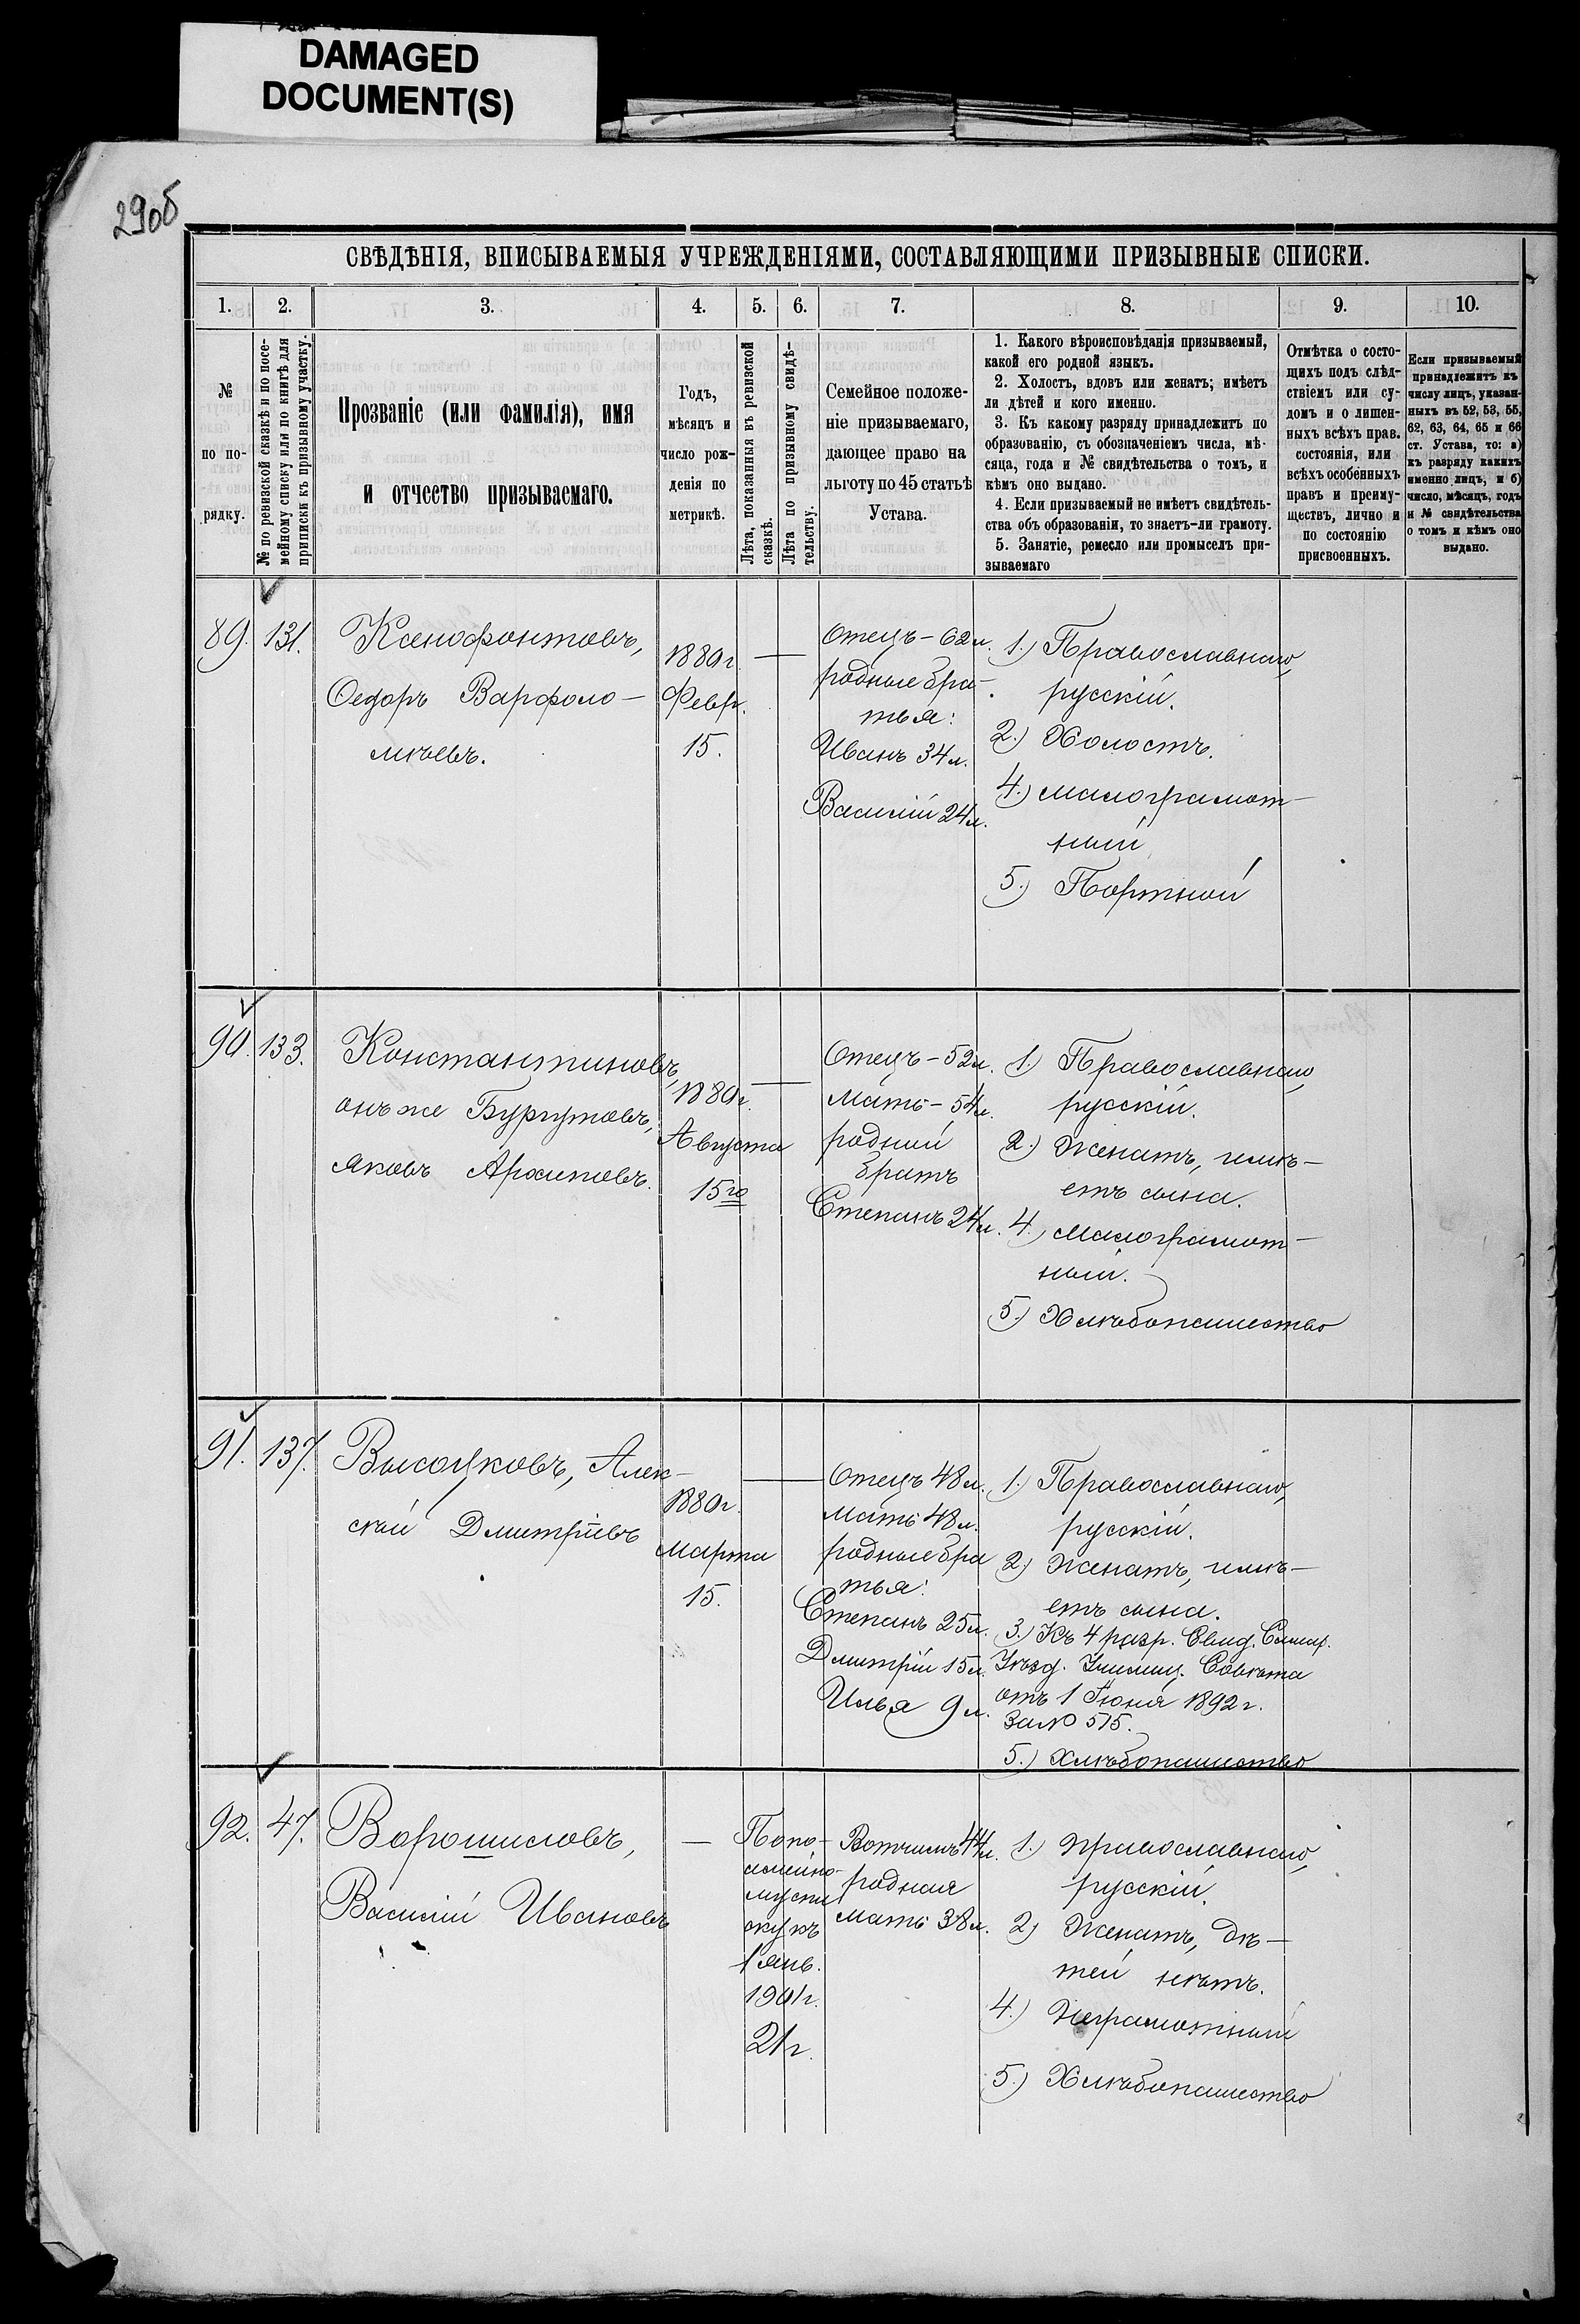 DAMAGED
DOCUMENT(S)
29об
СВѢДѢНІЯ, ВПИСЫВАЕМЫЯ УЧРЕЖДЕНІЯМИ, СОСТАВЛЯЮЩИМИ ПРИЗЫВНЫЕ СПИСКИ.
1. 2. 3. 4. 5. 6. 7. 8. 9. 10.
№
по по-
рядку.
№ по ревизской сказкѣ и по посе-
мейному списку или по книгѣ для
приписки къ призывному участку.
Прозваніе (или фамилія), имя
и отчество призываемаго.
Годъ,
мѣсяцъ и
число рож-
денія по
метрикѣ.
Лѣта, показанныя въ ревизской
сказкѣ.
Лѣта по призывному свидѣ-
тельству.
Семейное положе-
ніе призываемаго,
дающее право на
льготу по 45 статьѣ
Устава.
1. Какого вѣроисповѣданія призываемый,
какой его родной языкъ.
2. Холостъ, вдовъ или женатъ; имѣетъ
ли дѣтей и кого именно.
3. Къ какому разряду принадлежитъ по
образованію, съ обозначеніемъ числа, мѣ-
сяца, года и № свидѣтельства о томъ, и
кѣмъ оно выдано.
4. Если призываемый не имѣетъ свидѣтель-
ства объ образованіи, то знаетъ-ли грамоту.
5. Занятіе, ремесло или промыселъ при-
зываемаго
Отмѣтка о состо-
щихъ подъ слѣд-
ствіемъ или су-
домъ и о лишен-
ныхъ всѣхъ прав.
состоянія, или
всѣхъ особенныхъ
правъ и преиму-
ществъ, лично и
по состоянію
присвоенныхъ.
Если призываемый
принадлежитъ къ
числу лицъ, указан-
ныхъ въ 52, 53, 55,
62, 63, 64, 65 и 66
ст. Устава, то: а)
къ разряду какихъ
именно лицъ, и б)
число, мѣсяцъ, годъ
и № свидѣтельства
о томъ и кѣмъ оно
выдано.
89. 131.
Ксенофонтовъ,
Ѳедоръ Варфоло-
мѣевъ.
1880г.
Февр.
15.
—
Отецъ - 62л.
родные бра-
тья:
Иванъ 34л.
Василій 24л.
1.) Православнаго,
русскій.
2.) Холостъ.
4.) малограмот-
ный
5.) Портной
90. 133.
Константиновъ,
онъ же Бургутовъ,
Яковъ Архиповъ.
1880г.
Августа
15го
—
Отецъ - 52л.
Мать - 54л.
родный
братъ
Степанъ 24л.
1.) Православнаго,
русскій.
2.) Женатъ, имѣ-
етъ сына.
4.) малограмот-
ный.
5.) Хлѣбопашество
91. 137.
Высоцковъ, Алек-
сѣй Дмитріевъ
1880г.
Марта
15.
—
Отецъ 48л.
Мать 48л.
родные бра
тья:
Степанъ 25л.
Дмитрій 15л.
Илья 9л.
1.) Православнаго,
русскій.
2.) Женатъ, имѣ-
етъ сына.
3.) Къ 4 разр. Свид. Симф.
Уѣзд. Училищ. Совѣта
отъ 1 Іюня 1892г.
За № 515.
5.) Хлѣбопашество
92. 47.
Ворошиловъ,
Василій Ивановъ
—
По по-
семейно-
му спи
ску къ
1 янв.
1901г.
21г.
Вотчимъ 44л.
родная
мать 38л.
1.) Православнаго,
русскій.
2.) Женатъ, дѣ-
тей нѣтъ.
4.) Неграмотный
5.) Хлѣбопашество